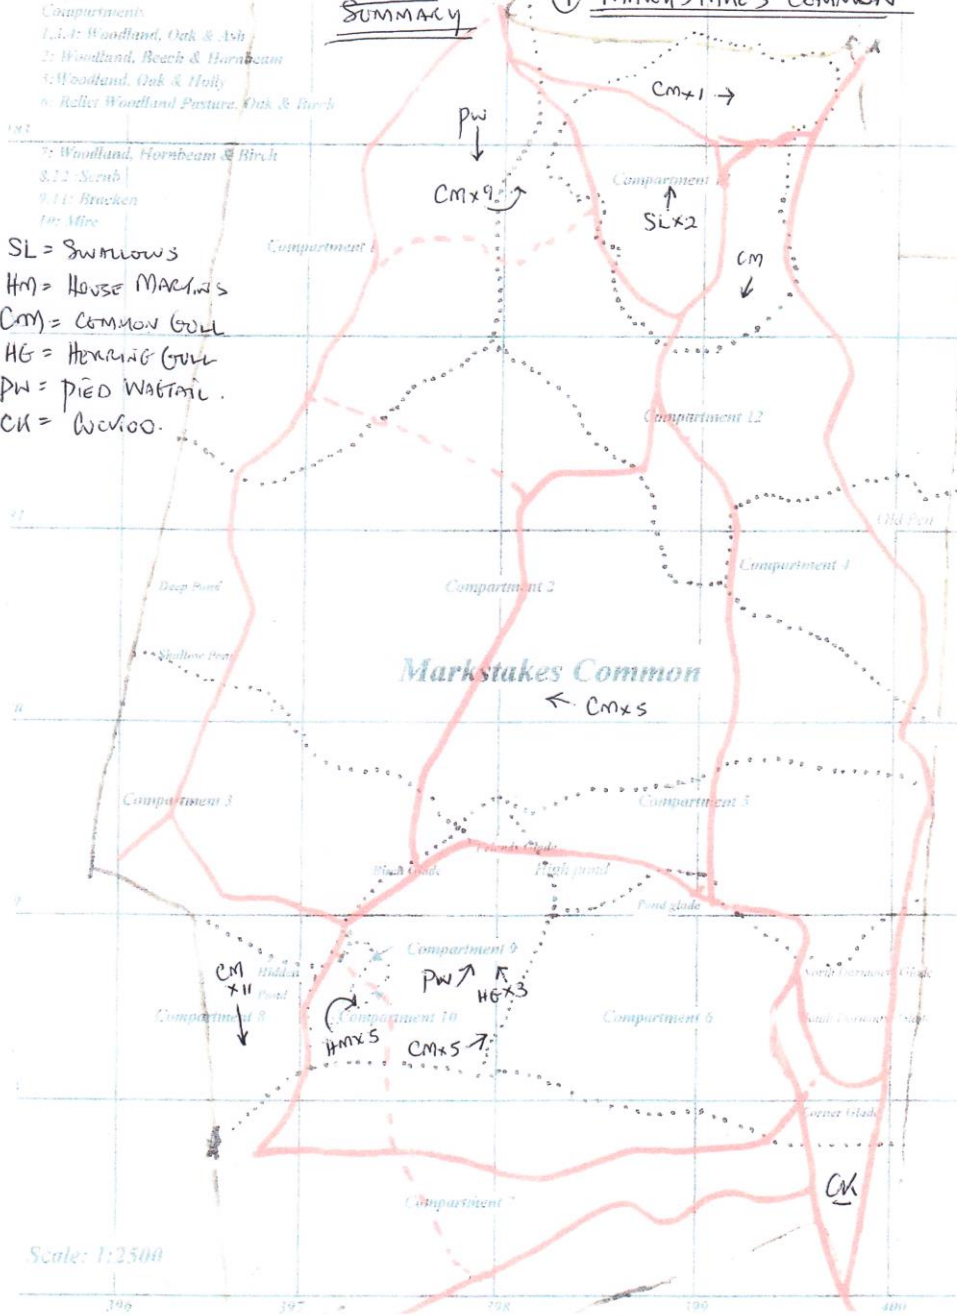 SUMMARY
① MARKSTAKES COMMON
Compartments
1,3,4: Woodland, Oak & Ash
2: Woodland, Beech & Hornbeam
5: Woodland, Oak & Holly
6: Relict Woodland Pasture, Oak & Birch
7: Woodland, Hornbeam & Birch
8,12: Scrub
9,11: Bracken
10: Mire
SL = SWALLOWS
HM = HOUSE MARTINS
CM = COMMON GULL
HG = HERRING GULL
PW = PIED WAGTAIL.
CK = CUCKOO.
CM×1 →
PW
↓
CM×9
Compartment 11
↑
SL×2
Compartment 1
CM
↓
Compartment 12
Old Pen
Deep Pond
Compartment 2
Compartment 4
Shallow Pond
Markstakes Common
← CM×5
Compartment 3
Compartment 5
Friends Glade
Birch Glade
High pond
Pond glade
Compartment 9
CM
×11
↓
Hidden
Pond
PW ↗
↑
HG×3
North Dormouse Glade
Compartment 8
Compartment 10
Compartment 6
South Dormouse Glade
HM×5
CM×5 ↗
Corner Glade
CK
Compartment 7
Scale: 1:2500
396
397
398
399
400